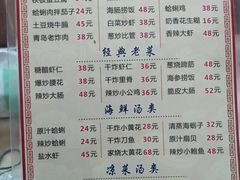 蛤蜊肉拌茄子24元 海肠捞饭48元 蛤蜊鸡38元
土豆烧牛腩45元 白菜炒虾38元 奶香花生糊36元
青岛老炸肉38元 葱炒比管38元 香辣大虾48元
经典老菜
糖醋虾仁38元 干炸虾仁36元 葱烧蹄筋48元
爆炒腰花38元 干炸里脊36元 海参捞饭48元
辣炒大肠48元 辣炒小公鸡36元 脆皮大肠52元
海鲜汤类
原汁蛤蜊38元 干炸小黄花28元 清蒸海蛎子32元
辣炒蛤蜊38元 干炸刀鱼38元 原汁扇贝38元
盐水虾45元 家烧大黄花68元 辣炒小鲍鱼48元
凉菜类